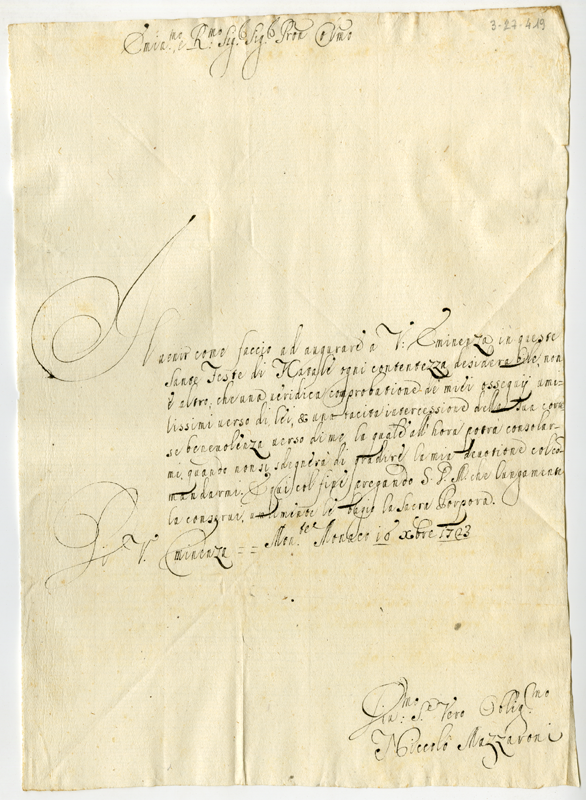 3-27-419
Emin.mo e R.mo Sig.r Sig.r Pron Colmo
Il venir come faccio ad augurare a V: Eminenza in queste
Sante Feste di Natale ogni contentezza desiderabile, non
è altro, che una veridica comprobatione de miei ossequij umi-
lissimi verso di lei, & una tacita intercessione della sua corte-
se benevolenza verso di me la quale all'hora potra consolar-
mi, quando non si sdegnerà di gradire la mia devotione col co-
mandarmi. E qui col fine pregando S. D. M. che lungamente
la conservi, umilmente le bagio la Sacra Porpora.
Di V. Eminenza == Mon.te Monaco 16 xbre 1703
Um.mo S.re Vero Oblig.mo
Niccolò Mazzaroni